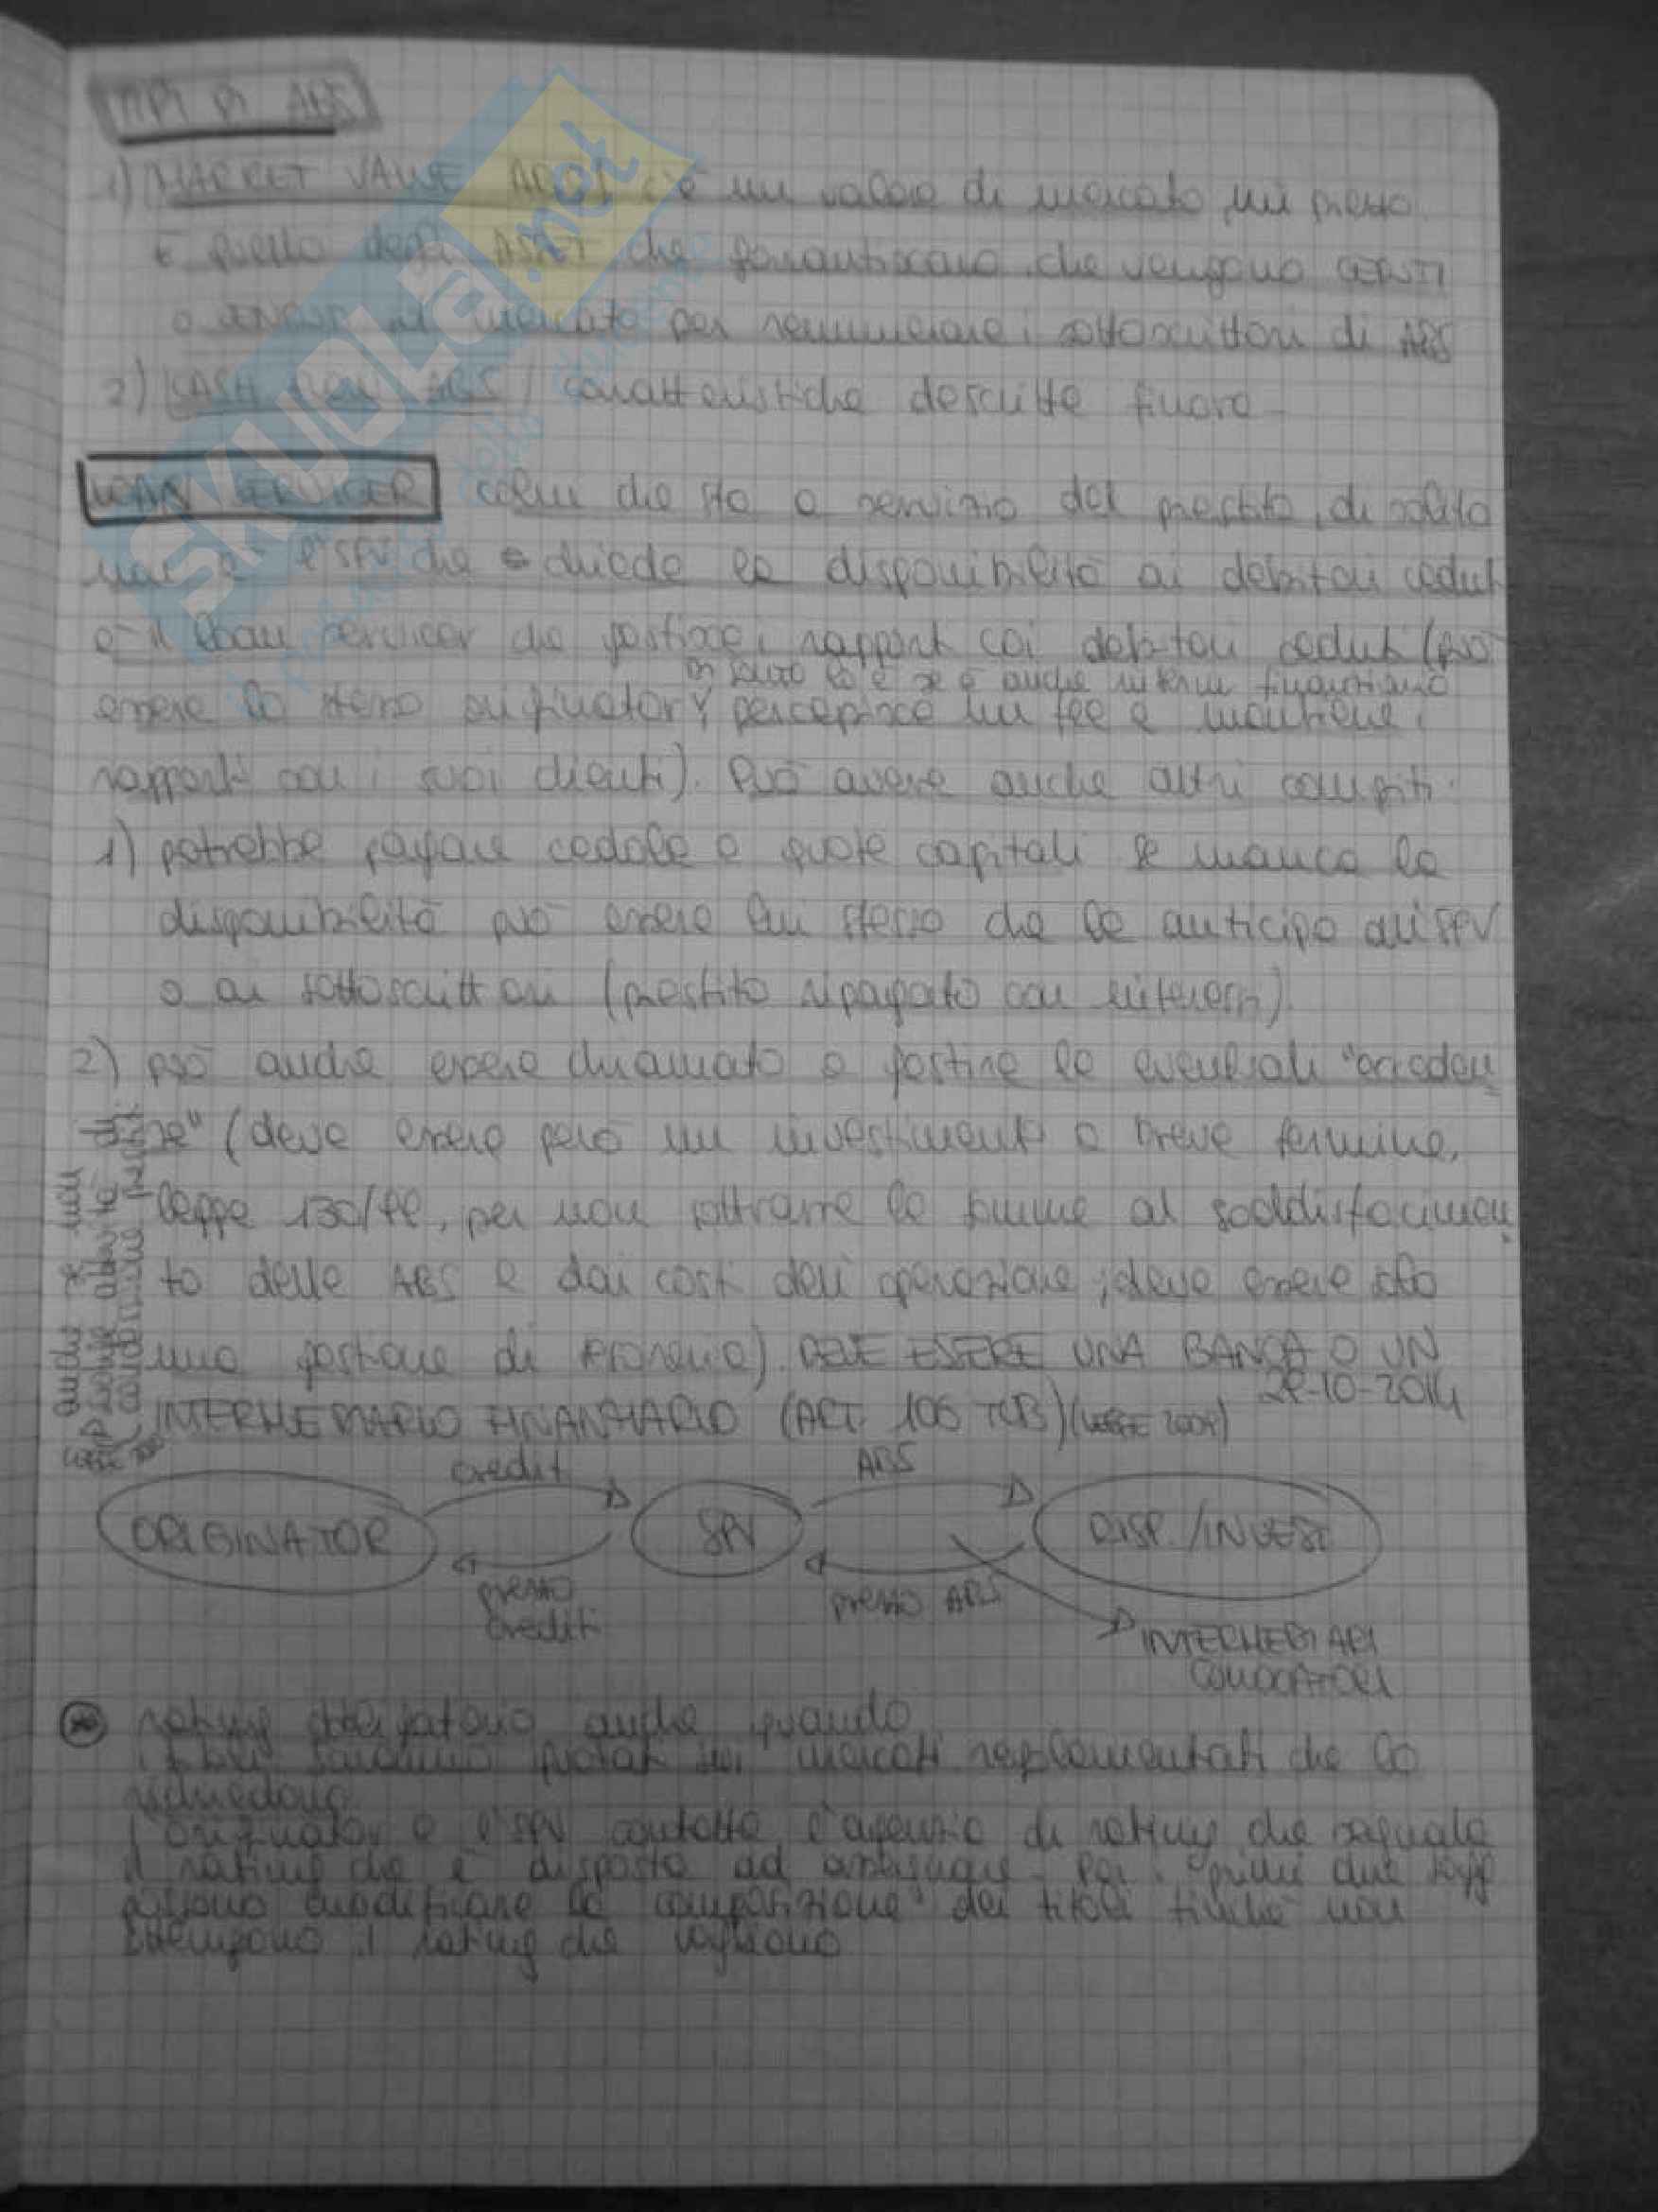 TIPI DI ABS
1) MARKET VALUE ABS c'è un valore di mercato, un prezzo
è quello degli ASSET che garantiscono che vengono GESTITI
o VENDUTI sul mercato per remunerare i sottoscrittori di ABS
2) CASH FLOW ABS / caratteristiche descritte finora
LOAN SERVICER colui che sta a servizio del prestito, di solito
non è l'SPV che chiede la disponibilità ai debitori ceduti
è il loan servicer che gestisce i rapporti coi debitori ceduti (può
di solito lo è se è anche interm. finanziario
essere lo stesso originator, percepisce un fee e mantiene i
rapporti con i suoi clienti). Può avere anche altri compiti:
1) potrebbe pagare cedole e quote capitali se manca la
disponibilità può essere lui stesso che le anticipa all'SPV
o ai sottoscrittori (prestito ripagato con interessi).
2) può anche essere chiamato a gestire le eventuali "ecceden
ze" (deve essere però un investimento a breve termine,
legge 130/99, per non sottrarre le somme al soddisfacimen
to delle ABS e dai costi dell'operazione, deve essere solo
una gestione di tesoreria). DEVE ESSERE UNA BANCA O UN
28-10-2014
INTERMEDIARIO FINANZIARIO (ART. 106 TUB)
anche se non
svolge attività di
crediti
ABS
ORIGINATOR
SPV
RISP./INVEST
prezzo
crediti
prezzo ABS
INTERMEDIARI
COLLOCATORI
rating obbligatorio anche quando
i titoli saranno quotati sui mercati regolamentati che lo
richiedono.
l'originator e l'SPV contatta l'agenzia di rating che segnala
il rating che è disposta ad assegnare. Poi i primi due sogg
possono modificare la "composizione" dei titoli finchè non
ottengono il rating che vogliono
SKUOLA.net